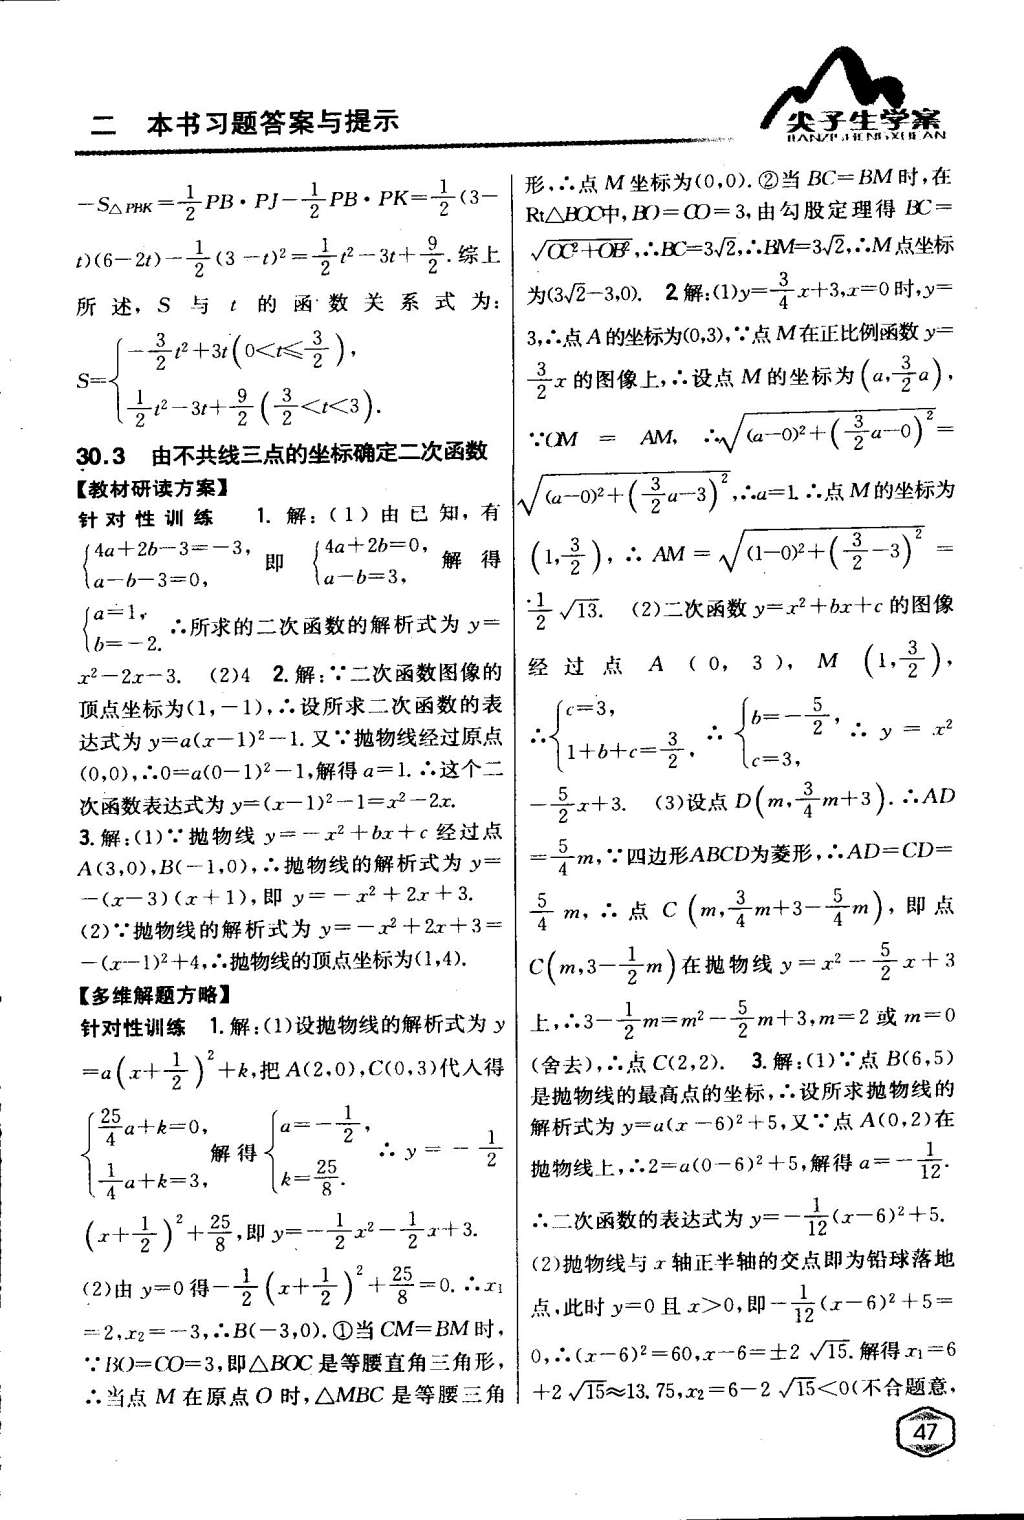 二 本书习题答案与提示
尖子生学案
JIANZISHENGXUEAN
-S△PBK=1/2PB·PJ-1/2PB·PK=1/2(3-
t)(6-2t)-1/2(3-t)²=1/2t²-3t+9/2.综上
所述,S与t的函数关系式为:
S={-3/2t²+3t(0<t≤3/2),
1/2t²-3t+9/2(3/2<t<3).
30.3 由不共线三点的坐标确定二次函数
【教材研读方案】
针对性训练 1.解:(1)由已知,有
{4a+2b-3=-3, a-b-3=0, 即{4a+2b=0, a-b=3, 解得
{a=1, b=-2. ∴所求的二次函数的解析式为y=
x²-2x-3. (2)4 2.解:∵二次函数图像的
顶点坐标为(1,-1),∴设所求二次函数的表
达式为y=a(x-1)²-1.又∵抛物线经过原点
(0,0),∴0=a(0-1)²-1,解得a=1.∴这个二
次函数表达式为y=(x-1)²-1=x²-2x.
3.解:(1)∵抛物线y=-x²+bx+c经过点
A(3,0),B(-1,0),∴抛物线的解析式为y=
-(x-3)(x+1),即y=-x²+2x+3.
(2)∵抛物线的解析式为y=-x²+2x+3=
-(x-1)²+4,∴抛物线的顶点坐标为(1,4).
【多维解题方略】
针对性训练 1.解:(1)设抛物线的解析式为y
=a(x+1/2)²+k,把A(2,0),C(0,3)代人得
{25/4a+k=0, 1/4a+k=3, 解得{a=-1/2, k=25/8. ∴y=-1/2
(x+1/2)²+25/8,即y=-1/2x²-1/2x+3.
(2)由y=0得-1/2(x+1/2)²+25/8=0.∴x₁
=2,x₂=-3,∴B(-3,0).①当CM=BM时,
∵BO=CO=3,即△BOC是等腰直角三角形,
∴当点M在原点O时,△MBC是等腰三角
形,∴点M坐标为(0,0).②当BC=BM时,在
Rt△BOC中,BO=CO=3,由勾股定理得BC=
√(OC²+OB²),∴BC=3√2,∴BM=3√2,∴M点坐标
为(3√2-3,0). 2解:(1)y=3/4x+3,x=0时,y=
3,∴点A的坐标为(0,3),∵点M在正比例函数y=
3/2x的图像上,∴设点M的坐标为(a,3/2a),
∵OM=AM,∴√((a-0)²+(3/2a-0)²)=
√((a-0)²+(3/2a-3)²),∴a=1.∴点M的坐标为
(1,3/2),∴AM=√((1-0)²+(3/2-3)²)=
1/2√13. (2)二次函数y=x²+bx+c的图像
经过点A(0,3),M(1,3/2),
∴{c=3, 1+b+c=3/2, ∴{b=-5/2, c=3, ∴y=x²
-5/2x+3. (3)设点D(m,3/4m+3).∴AD
=5/4m,∵四边形ABCD为菱形,∴AD=CD=
5/4m,∴点C(m,3/4m+3-5/4m),即点
C(m,3-1/2m)在抛物线y=x²-5/2x+3
上,∴3-1/2m=m²-5/2m+3,m=2或m=0
(舍去),∴点C(2,2). 3.解:(1)∵点B(6,5)
是抛物线的最高点的坐标,∴设所求抛物线的
解析式为y=a(x-6)²+5,又∵点A(0,2)在
抛物线上,∴2=a(0-6)²+5,解得a=-1/12.
∴二次函数的表达式为y=-1/12(x-6)²+5.
(2)抛物线与x轴正半轴的交点即为铅球落地
点,此时y=0且x>0,即-1/12(x-6)²+5=
0,∴(x-6)²=60,x-6=±2√15.解得x₁=6
+2√15≈13.75,x₂=6-2√15<0(不合题意,
47